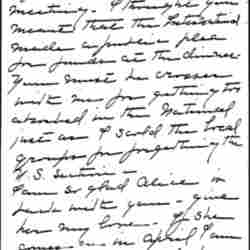 meeting. I thought you
meant that the Intersorted
made a public plea
for funds at the dinner
You must be crosser
with me for getting too
absorbed in the National
just as I scold the local
groups for forgetting the
U.S. Section —
I am so glad Alice is
back with you — give
her my love. If she
comes on in April I am